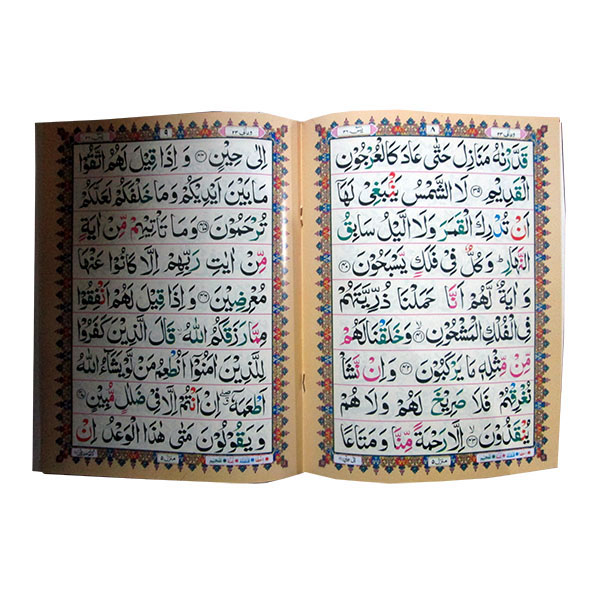 قَدَّرْنٰهُ مَنَازِلَ حَتّٰى عَادَ كَالْعُرْجُوْنِ
الْقَدِيْمِ ۳۹ لَا الشَّمْسُ يَنْۢبَغِىْ لَهَاۤ
اَنْ تُدْرِكَ الْقَمَرَ وَلَا الَّيْلُ سَابِقُ
النَّهَارِ ؕ وَ كُلٌّ فِىْ فَلَكٍ يَّسْبَحُوْنَ ۴۰
وَ اٰيَةٌ لَّهُمْ اَنَّا حَمَلْنَا ذُرِّيَّتَهُمْ
فِى الْفُلْكِ الْمَشْحُوْنِ ۴۱ وَخَلَقْنَا لَهُمْ
مِّنْ مِّثْلِهٖ مَا يَرْكَبُوْنَ ۴۲ وَ اِنْ نَّشَاْ
نُغْرِقْهُمْ فَلَا صَرِيْخَ لَهُمْ وَلَا هُمْ
يُنْقَذُوْنَ ۴۳ اِلَّا رَحْمَةً مِّنَّا وَ مَتَاعًا
اِلٰى حِيْنٍ ۴۴ وَ اِذَا قِيْلَ لَهُمُ اتَّقُوْا
مَا بَيْنَ اَيْدِيْكُمْ وَمَا خَلْفَكُمْ لَعَلَّكُمْ
تُرْحَمُوْنَ ۴۵ وَمَا تَاْتِيْهِمْ مِّنْ اٰيَةٍ
مِّنْ اٰيٰتِ رَبِّهِمْ اِلَّا كَانُوْا عَنْهَا
مُعْرِضِيْنَ ۴۶ وَ اِذَا قِيْلَ لَهُمْ اَنْفِقُوْا
مِمَّا رَزَقَكُمُ اللّٰهُ ۙ قَالَ الَّذِيْنَ كَفَرُوْا
لِلَّذِيْنَ اٰمَنُوْۤا اَنُطْعِمُ مَنْ لَّوْ يَشَآءُ اللّٰهُ
اَطْعَمَهٗۤ ۖ اِنْ اَنْتُمْ اِلَّا فِىْ ضَلٰلٍ مُّبِيْنٍ ۴۷
وَ يَقُوْلُوْنَ مَتٰى هٰذَا الْوَعْدُ اِنْ